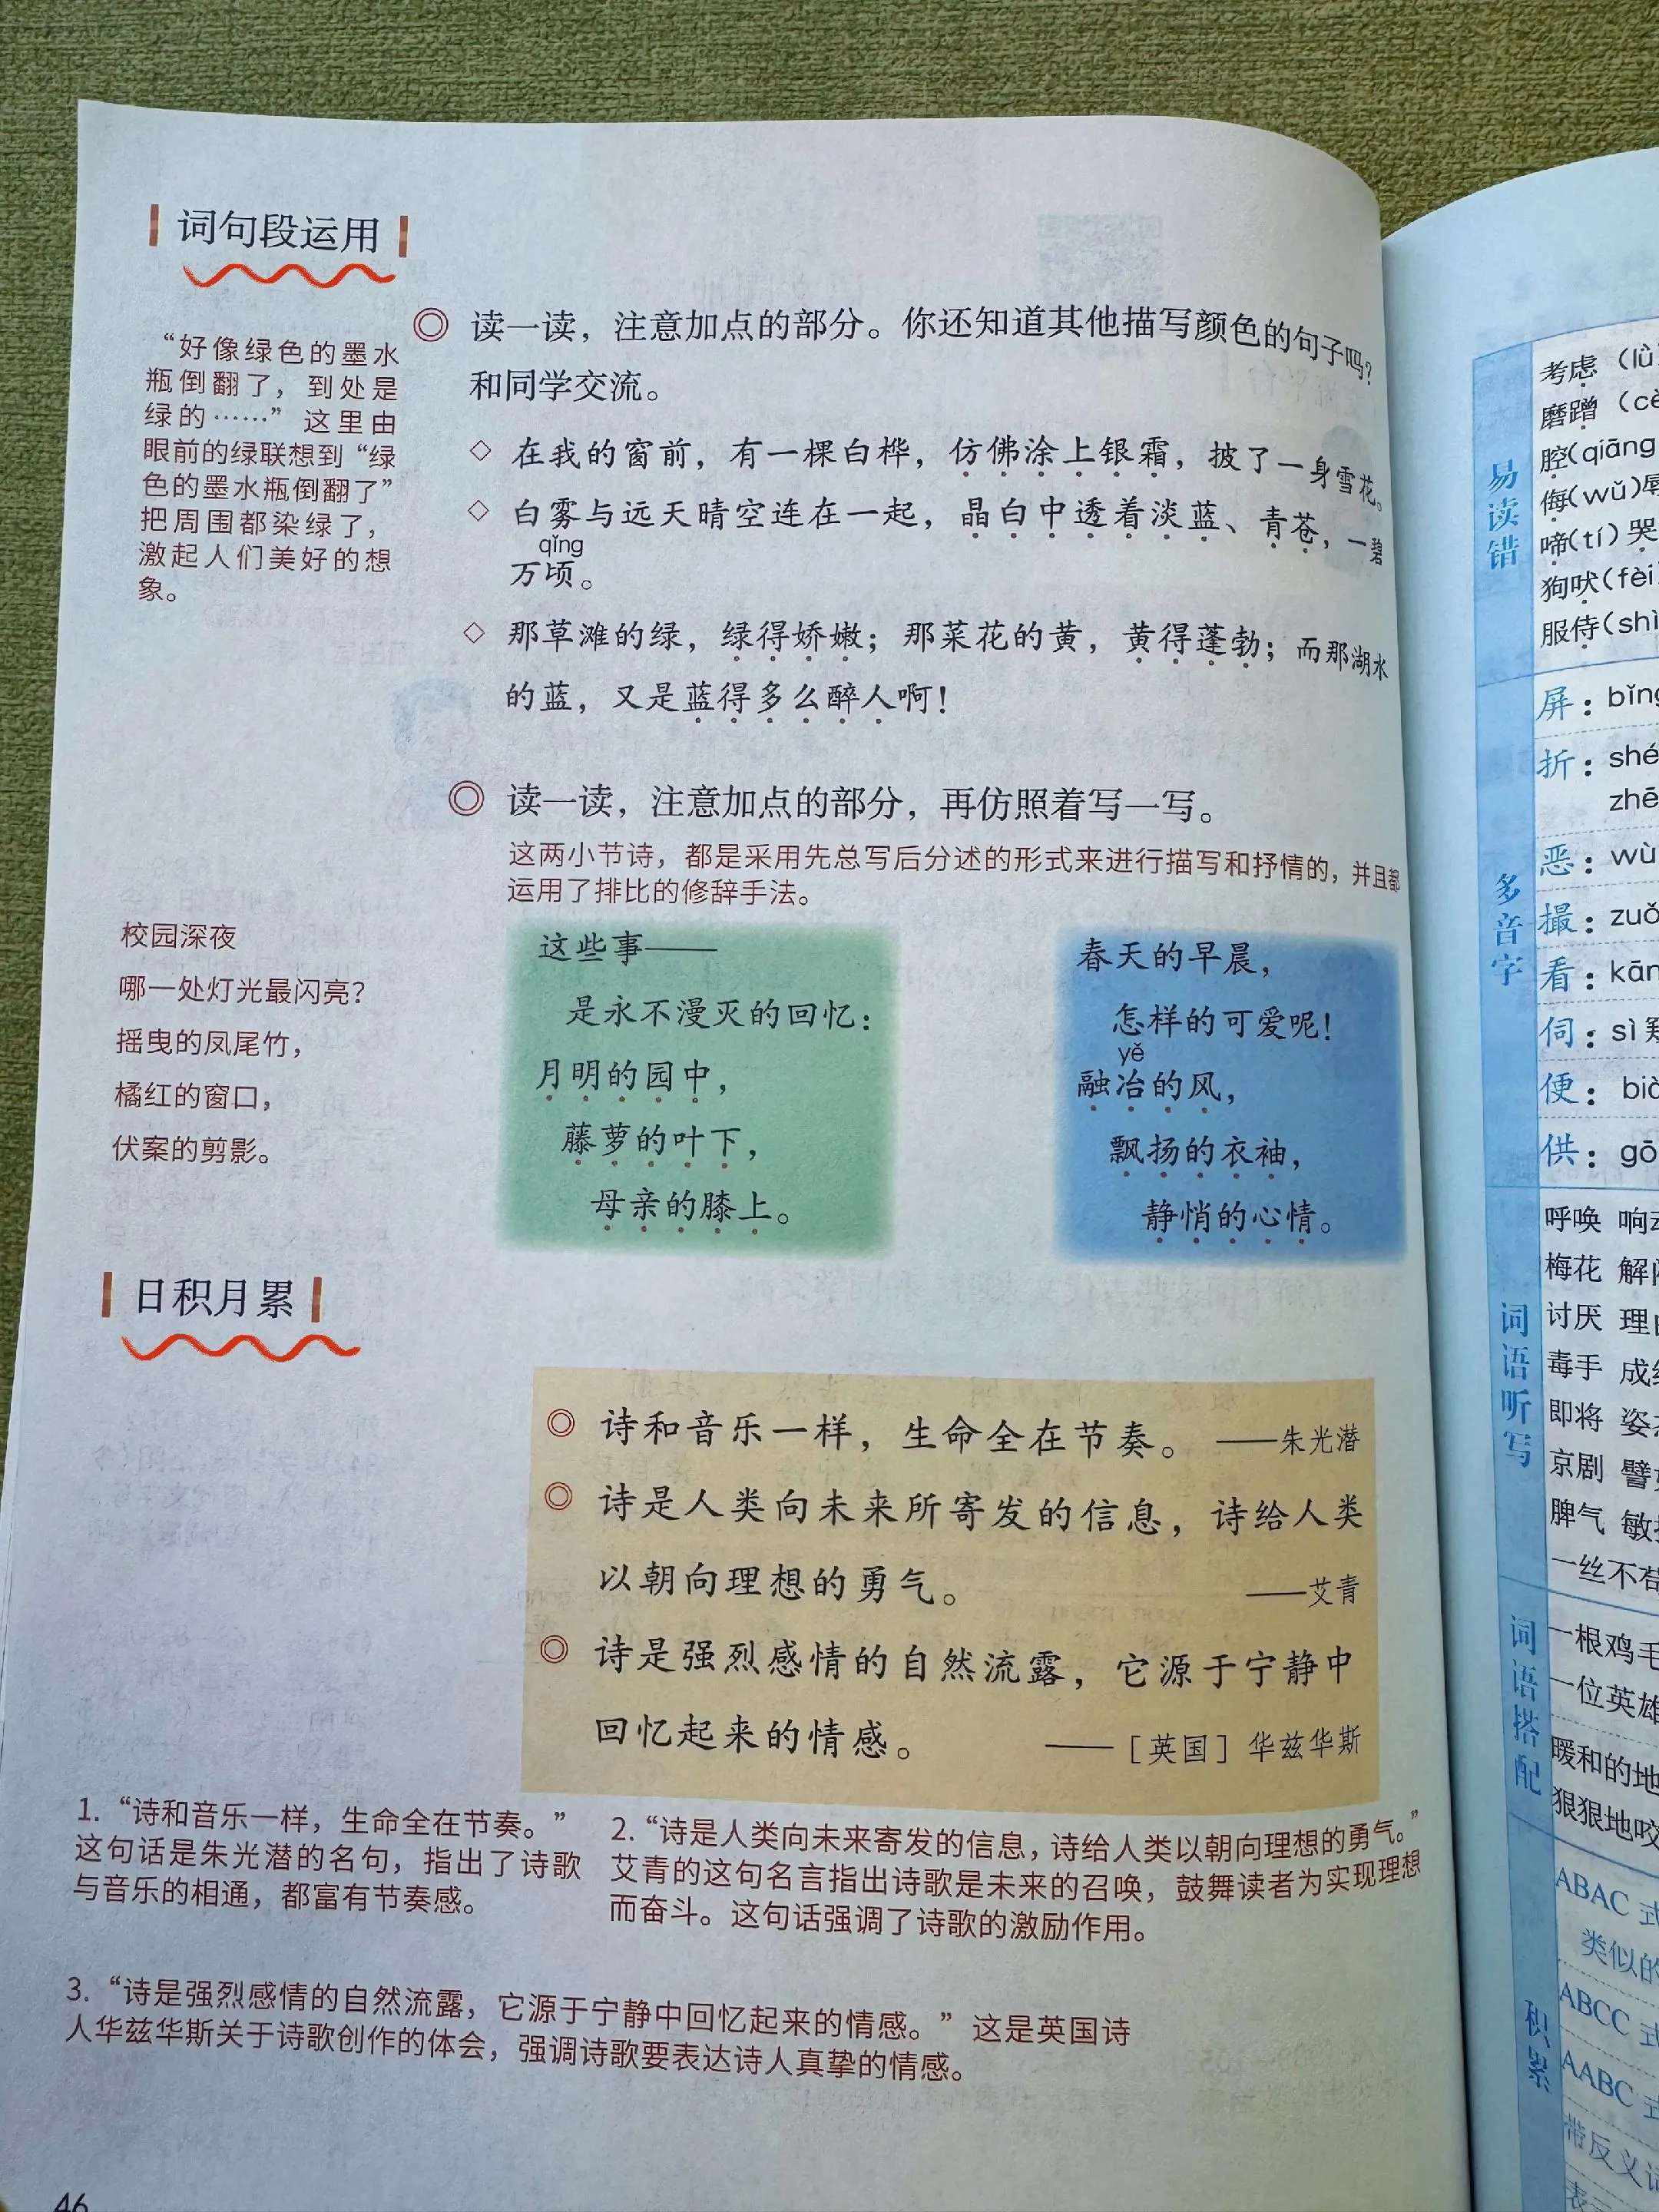 词句段运用
“好像绿色的墨水
瓶倒翻了，到处是
绿的……”这里由
眼前的绿联想到“绿
色的墨水瓶倒翻了”
把周围都染绿了，
激起人们美好的想
象。
◎ 读一读，注意加点的部分。你还知道其他描写颜色的句子吗？
和同学交流。
◇ 在我的窗前，有一棵白桦，仿佛涂上银霜，披了一身雪花。
◇ 白雾与远天晴空连在一起，晶白中透着淡蓝、青苍，一碧
qǐng
万顷。
◇ 那草滩的绿，绿得娇嫩；那菜花的黄，黄得蓬勃；而那湖水
的蓝，又是蓝得多么醉人啊！
◎ 读一读，注意加点的部分，再仿照着写一写。
这两小节诗，都是采用先总写后分述的形式来进行描写和抒情的，并且都
运用了排比的修辞手法。
校园深夜
哪一处灯光最闪亮？
摇曳的凤尾竹，
橘红的窗口，
伏案的剪影。
这些事——
是永不漫灭的回忆：
月明的园中，
藤萝的叶下，
母亲的膝上。
春天的早晨，
怎样的可爱呢！
yě
融冶的风，
飘扬的衣袖，
静悄的心情。
日积月累
◎ 诗和音乐一样，生命全在节奏。 ——朱光潜
◎ 诗是人类向未来所寄发的信息，诗给人类
以朝向理想的勇气。 ——艾青
◎ 诗是强烈感情的自然流露，它源于宁静中
回忆起来的情感。 ——［英国］华兹华斯
1. “诗和音乐一样，生命全在节奏。”
这句话是朱光潜的名句，指出了诗歌
与音乐的相通，都富有节奏感。
2. “诗是人类向未来寄发的信息，诗给人类以朝向理想的勇气。”
艾青的这句名言指出诗歌是未来的召唤，鼓舞读者为实现理想
而奋斗。这句话强调了诗歌的激励作用。
3. “诗是强烈感情的自然流露，它源于宁静中回忆起来的情感。”这是英国诗
人华兹华斯关于诗歌创作的体会，强调诗歌要表达诗人真挚的情感。
46
易读错
考虑（lǜ
磨蹭（cè
腔(qiāng
侮(wǔ)辱
啼(tí)哭
狗吠(fèi
服侍(shì
多音字
屏：bǐng
折：shé
zhē
恶：wù
撮：zuǒ
看：kān
伺：sì
便：bià
供：gō
词语听写
呼唤 响
梅花 解
讨厌 理由
毒手 成绩
即将 姿
京剧 譬
脾气 敏
一丝不苟
词语搭配
一根鸡毛
一位英雄
暖和的地
狠狠地咬
积累
ABAC 式
类似的
ABCC 式
AABC 式
带反义词
表